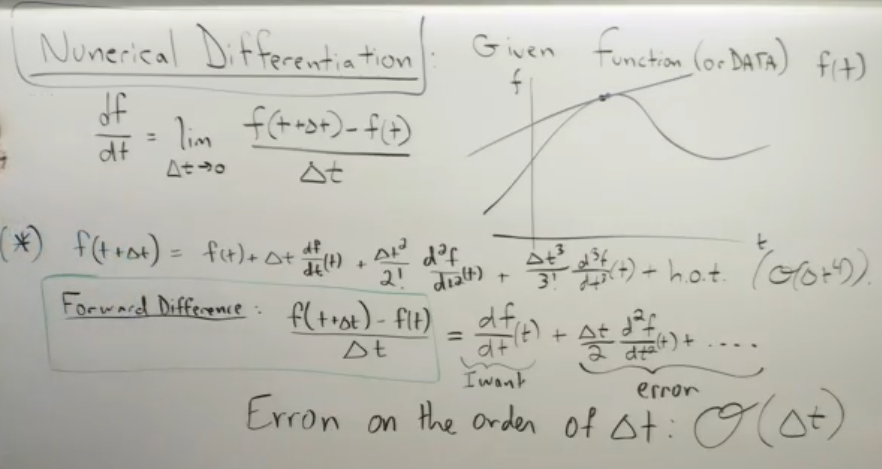 Numerical Differentiation : Given Function (or DATA) f(t)
f
df/dt = lim Δt→0 (f(t+Δt) - f(t))/Δt
t
(*) f(t+Δt) = f(t) + Δt df/dt(t) + Δt²/2! d²f/dt²(t) + Δt³/3! d³f/dt³(t) + h.o.t. (O(Δt⁴)).
Forward Difference : (f(t+Δt) - f(t))/Δt = df/dt(t) + Δt/2 d²f/dt²(t) + ....
I want error
Error on the order of Δt : O(Δt)